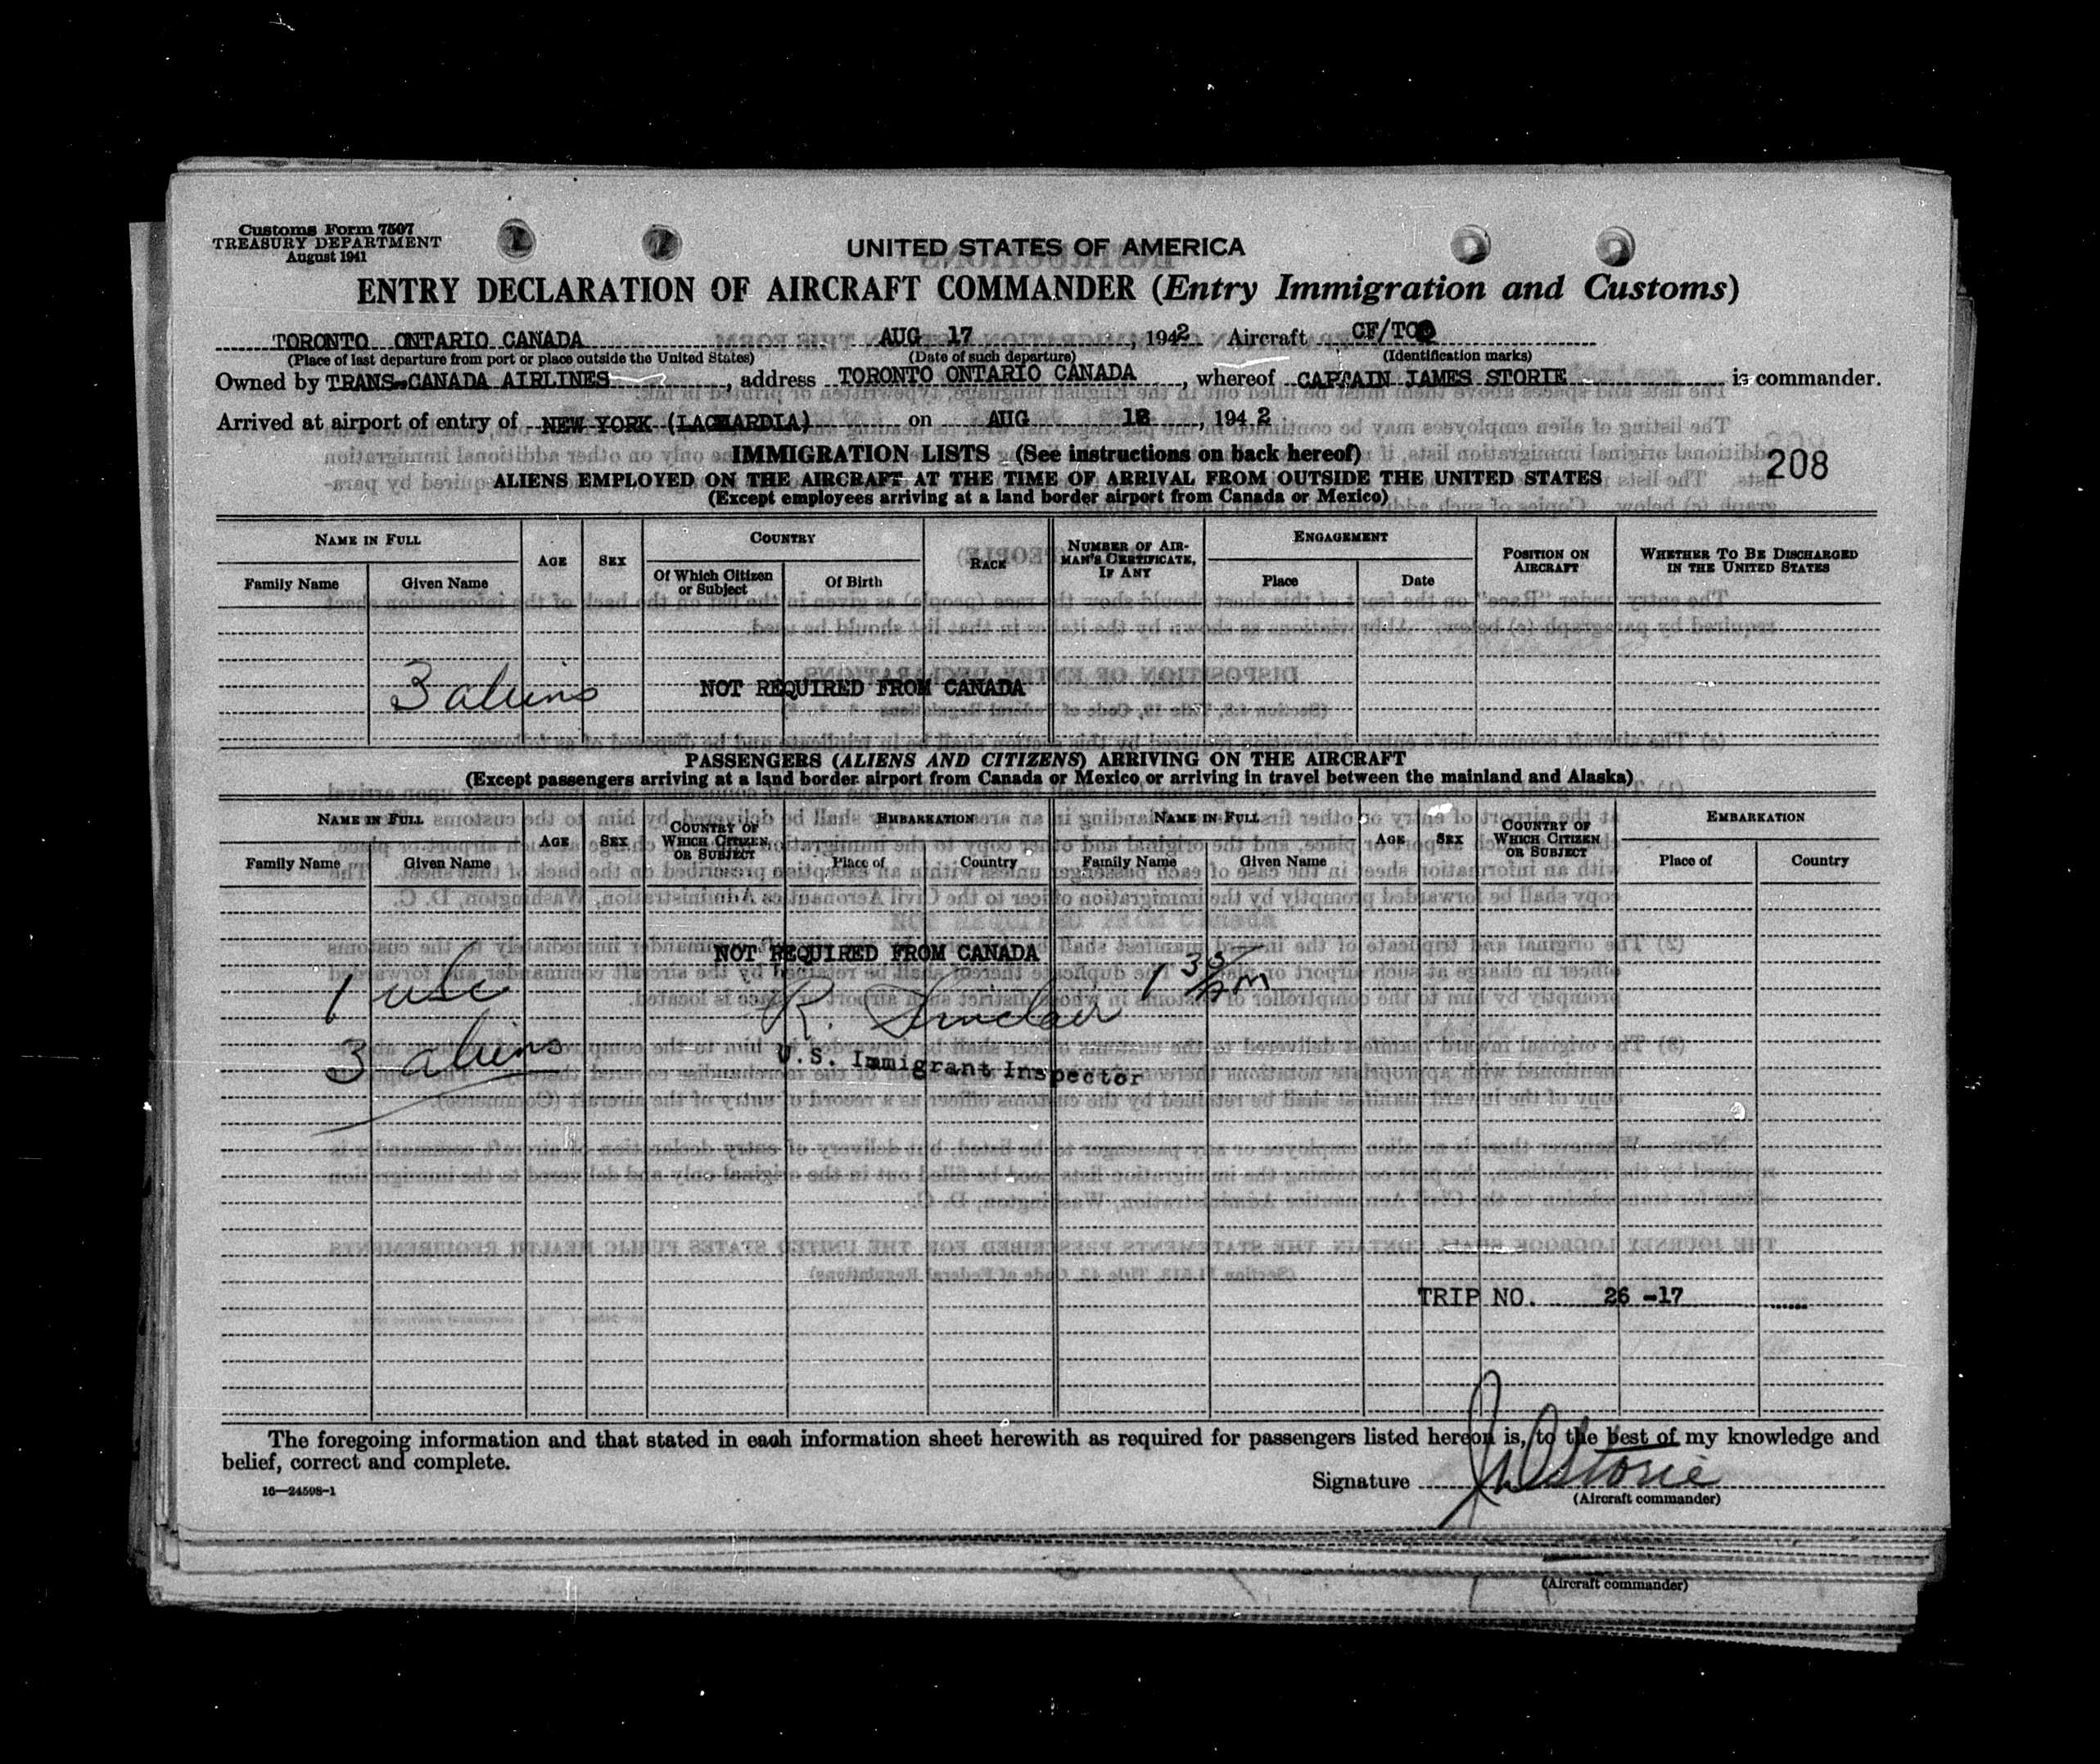 Customs Form 7507
TREASURY DEPARTMENT
August 1941
UNITED STATES OF AMERICA
ENTRY DECLARATION OF AIRCRAFT COMMANDER (Entry Immigration and Customs)
TORONTO ONTARIO CANADA AUG 17, 1942 Aircraft CF/TC
(Place of last departure from port or place outside the United States) (Date of such departure) (Identification marks)
Owned by TRANS-CANADA AIRLINES, address TORONTO ONTARIO CANADA, whereof CAPTAIN JAMES STORIE is commander.
Arrived at airport of entry of NEW YORK (LAGUARDIA) on AUG 18, 1942
IMMIGRATION LISTS (See instructions on back hereof)
208
ALIENS EMPLOYED ON THE AIRCRAFT AT THE TIME OF ARRIVAL FROM OUTSIDE THE UNITED STATES
(Except employees arriving at a land border airport from Canada or Mexico)
NAME IN FULL AGE SEX COUNTRY RACE NUMBER OF AIRMAN'S CERTIFICATE, IF ANY ENGAGEMENT POSITION ON AIRCRAFT WHETHER TO BE DISCHARGED IN THE UNITED STATES
Family Name Given Name Of Which Citizen or Subject Of Birth Place Date
3 aliens NOT REQUIRED FROM CANADA
PASSENGERS (ALIENS AND CITIZENS) ARRIVING ON THE AIRCRAFT
(Except passengers arriving at a land border airport from Canada or Mexico or arriving in travel between the mainland and Alaska)
NAME IN FULL AGE SEX COUNTRY OF WHICH CITIZEN OR SUBJECT EMBARKATION NAME IN FULL AGE SEX COUNTRY OF WHICH CITIZEN OR SUBJECT EMBARKATION
Family Name Given Name Place of Country Family Name Given Name Place of Country
NOT REQUIRED FROM CANADA
1 usc R. Sinclair 1 35 pm
3 aliens U.S. Immigrant Inspector
TRIP NO. 26 -17
The foregoing information and that stated in each information sheet herewith as required for passengers listed hereon is, to the best of my knowledge and
belief, correct and complete.
Signature JW Storie
16—24598-1 (Aircraft commander)
(Aircraft commander)